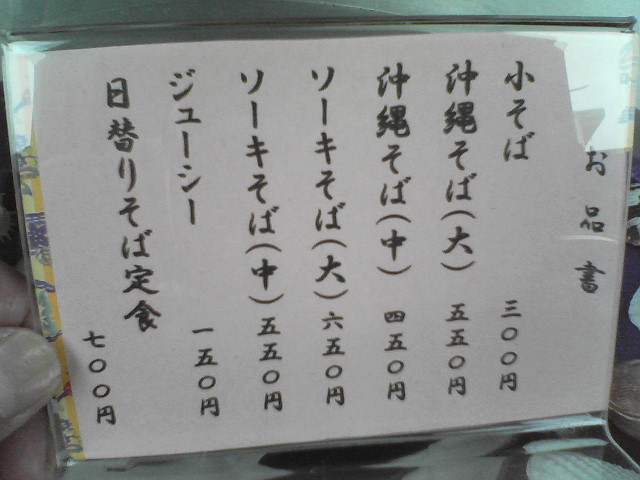 お品書
小そば 三〇〇円
沖縄そば(大) 五五〇円
沖縄そば(中) 四五〇円
ソーキそば(大) 六五〇円
ソーキそば(中) 五五〇円
ジューシー 一五〇円
日替りそば定食 七〇〇円